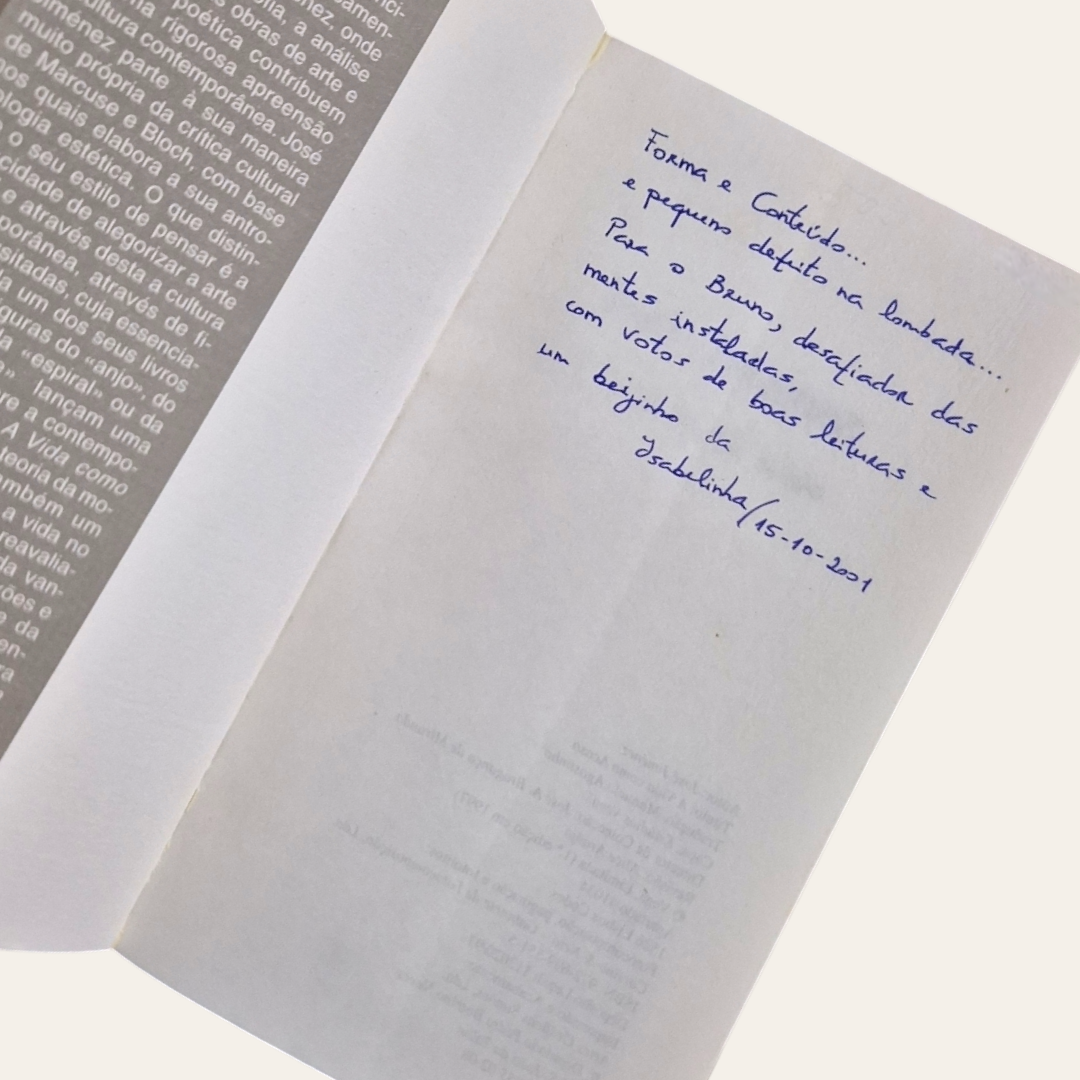 ici-
samen-
nez, onde
lia, a análise
s obras de arte e
poética contribuem
ma rigorosa apreensão
cultura contemporânea. José
iménez parte à sua maneira
muito própria da crítica cultural
de Marcuse e Bloch, com base
nos quais elabora a sua antro-
ologia estética. O que distin-
o seu estilo de pensar é a
cidade de alegorizar a arte
e através desta a cultura
porânea, através de fi-
sitadas, cuja essencia-
um dos seus livros
guras do «anjo», do
«espiral» ou da
lançam uma
a contempo-
A Vida como
teoria da mo-
ambém um
a vida no
reavalia-
da van-
ções e
da
en-
ra
Forma e Conteúdo...
e pequeno defeito na lombada...
Para o Bruno, desafiador das
mentes instaladas,
com votos de boas leituras e
um beijinho da
Isabelinha/15-10-2001